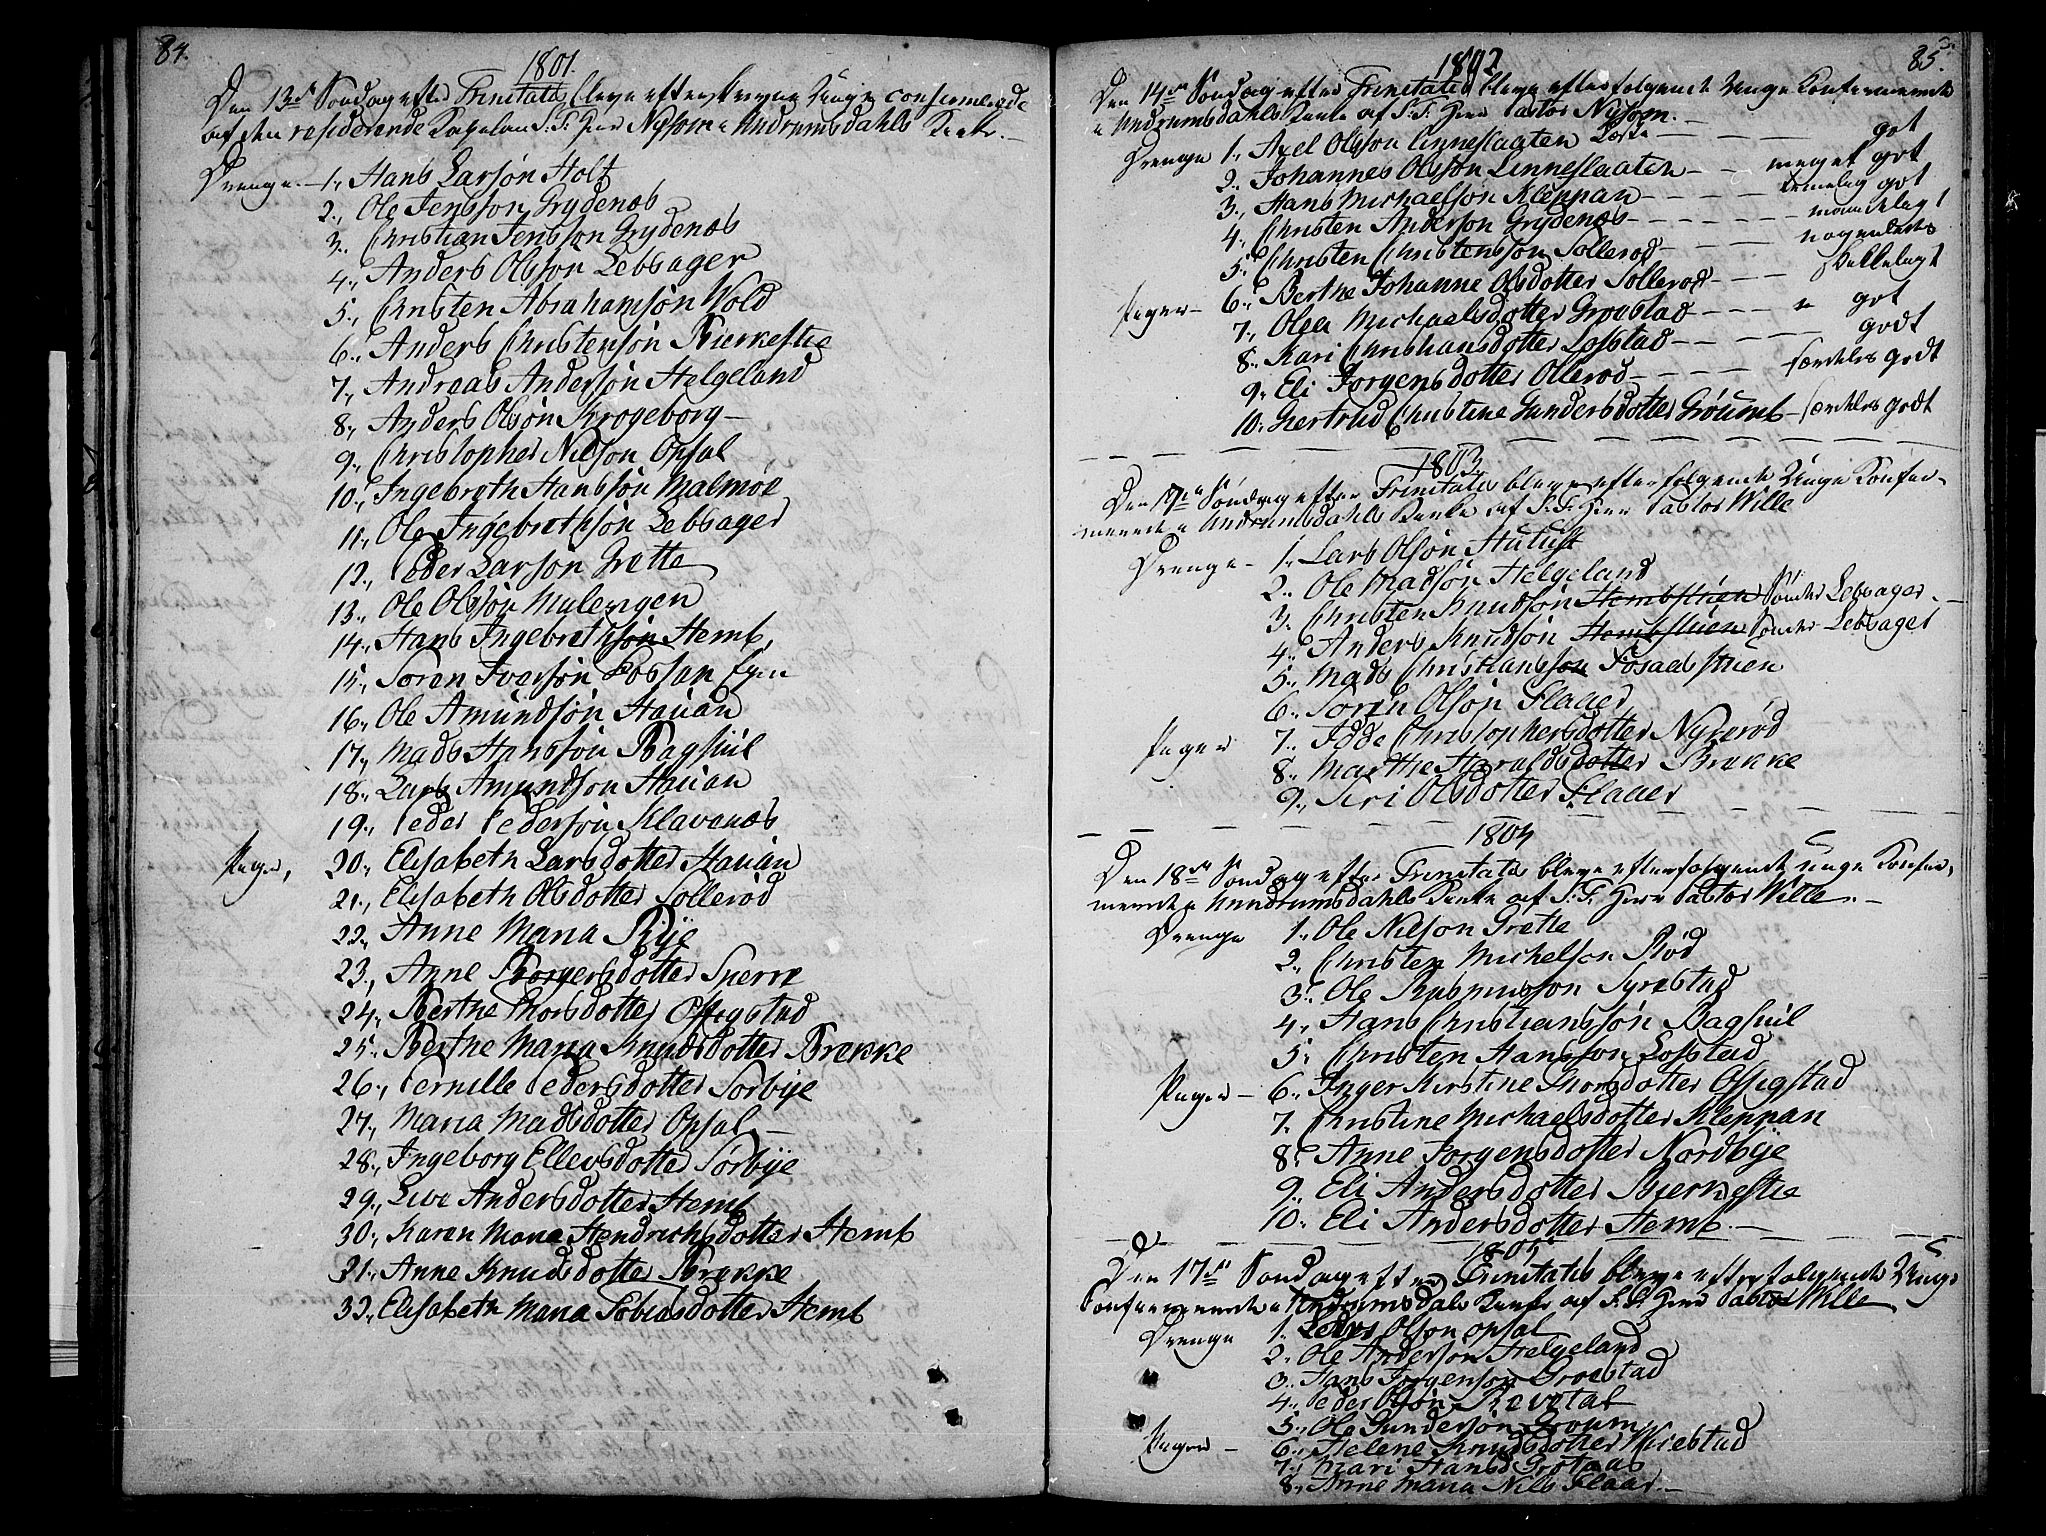 84.
1801.
Den 13de Søndag efter Trinitatis bleve efterskrevne Unge confirmerede
af den residerende Kapelan S. T. Herr Nyssom i Undrumsdahls Kirke.
Drenge. 1., Hans Larsøn Holt
2., Ole Jensøn Grydenæs
3., Christian Jensøn Grydenæs
4., Anders Olssøn Lebsager
5., Christen Abrahamsøn Wold
6., Anders Christensøn Bierkestie
7., Andreas Andersøn Helgeland
8., Anders Olsøn Krogeborg
9., Christopher Nilsøn Opsal
10., Ingebreth Hanssøn Malmøe
11., Ole Ingebrethsøn Lebsager
12., Peder Larsøn Grette
13., Ole Olssøn Mulengen
14., Hans Ingebrethsøn Hemb,
15., Søren Iversøn Fossan Egen
16., Ole Amundsøn Hauan
17., Mads Hanssøn Bagsuil
18., Lars Amundsøn Hauan
19., Peder Pedersøn Klavenæs
Piger, 20., Elisabeth Larsdotter Hauan
21., Elisabeth Olsdotter Sollerød
22., Anne Maria Rije
23., Anne Borgersdotter Sperre
24., Berthe Thorsdotter Offigstad
25., Berthe Maria Knudsdotter Brekke
26., Pernille Pedersdotter Sørbije
27., Maria Madsdotter Opsal
28., Ingeborg Ellevsdotter Sørbije
29., Live Andersdotter Hemb
30., Karen Maria Hendrichsdotter Hemb
21., Anne Knudsdotter Brekke
32., Elisabeth Maria Tobiasdotter Hemb
85.
1802
Den 14de Søndag efter Trinitatis bleve efterfølgende Unge Konfirmerede
i Undrumsdahls Kirke af S. T. Herr Pastor Nyssom.
Drenge 1., Axel Olsøn Linneslaaten - got
2., Johannes Olsøn Linneslaaten - meget got
3., Hans Michaelsøn Kleppan - temelig got
4., Christen Andersøn Grydenæs - maadelig
5., Christen Christensøn Sollerød - nogenledes
Piger - 6., Berthe Johanne Olsdotter Sollerød - skikkeligt
7., Olea Michaelsdotter Groestad - got
8., Kari Christiansdotter Lofstad - godt
9., Eli Jørgensdotter Ollerød - særdeles godt
10., Giertrud Christine Gundersdotter Grøumb - særdeles godt
1803.
Den 17de Søndag efter Trinitatis bleve efterfølgende Unge Konfir-
merede i Undrumsdahls Kirke af S. T. Herr Pastor Wille
Drenge - 1., Lars Olsøn Hulust
2., Ole Madsøn Helgeland
3., Christen Knudsøn Hembstuen Søndre Lebsager.
4., Anders Knudsøn Hembstuen Søndre Lebsager
5., Mads Christianssøn Fosaasstuen
6., Søren Olsøn Flaaer
Piger 7., Idde Christophersdotter Nyrerød
8., Marthe Haraldsdotter Brekke
9., Siri Olsdotter Flaaer
1804
Den 18de Søndag efter Trinitatis bleve efterfølgende unge Konfir-
merede i Undrumsdahls Kirke af S. T. Herr Pastor Wille.
Drenge 1., Ole Nilsøn Grette
2., Christen Michelsøn Rød
3., Ole Rasmussøn Syrestad
4., Hans Christianssøn Bagsuil
5., Christen Hanssøn Lofstad
Piger - 6., Inger Kirstine Thorsdotter Offigstad
7., Christine Michaelsdotter Kleppan
8., Anne Jørgensdotter Nordbije
9., Eli Andersdotter Bierkestie
10., Eli Andersdotter Hemb.
1805
Den 17de Søndag efter Trinitatis bleve efterfølgende Unge
Konfirmerede i Undrumsdals Kirke af S. T. Herr Pastor Wille
Drenge 1., Olsøn Opsal
2., Ole Andersøn Helgeland
3., Hans Jørgensøn Groestad
4., Peder Olsøn Revetal
5., Ole Gundersøn Groum
Piger - 6., Helene Knudsdotter Mirestad
7., Mari Hansd Grotaas
8., Anne Maria Nils Flaaer.